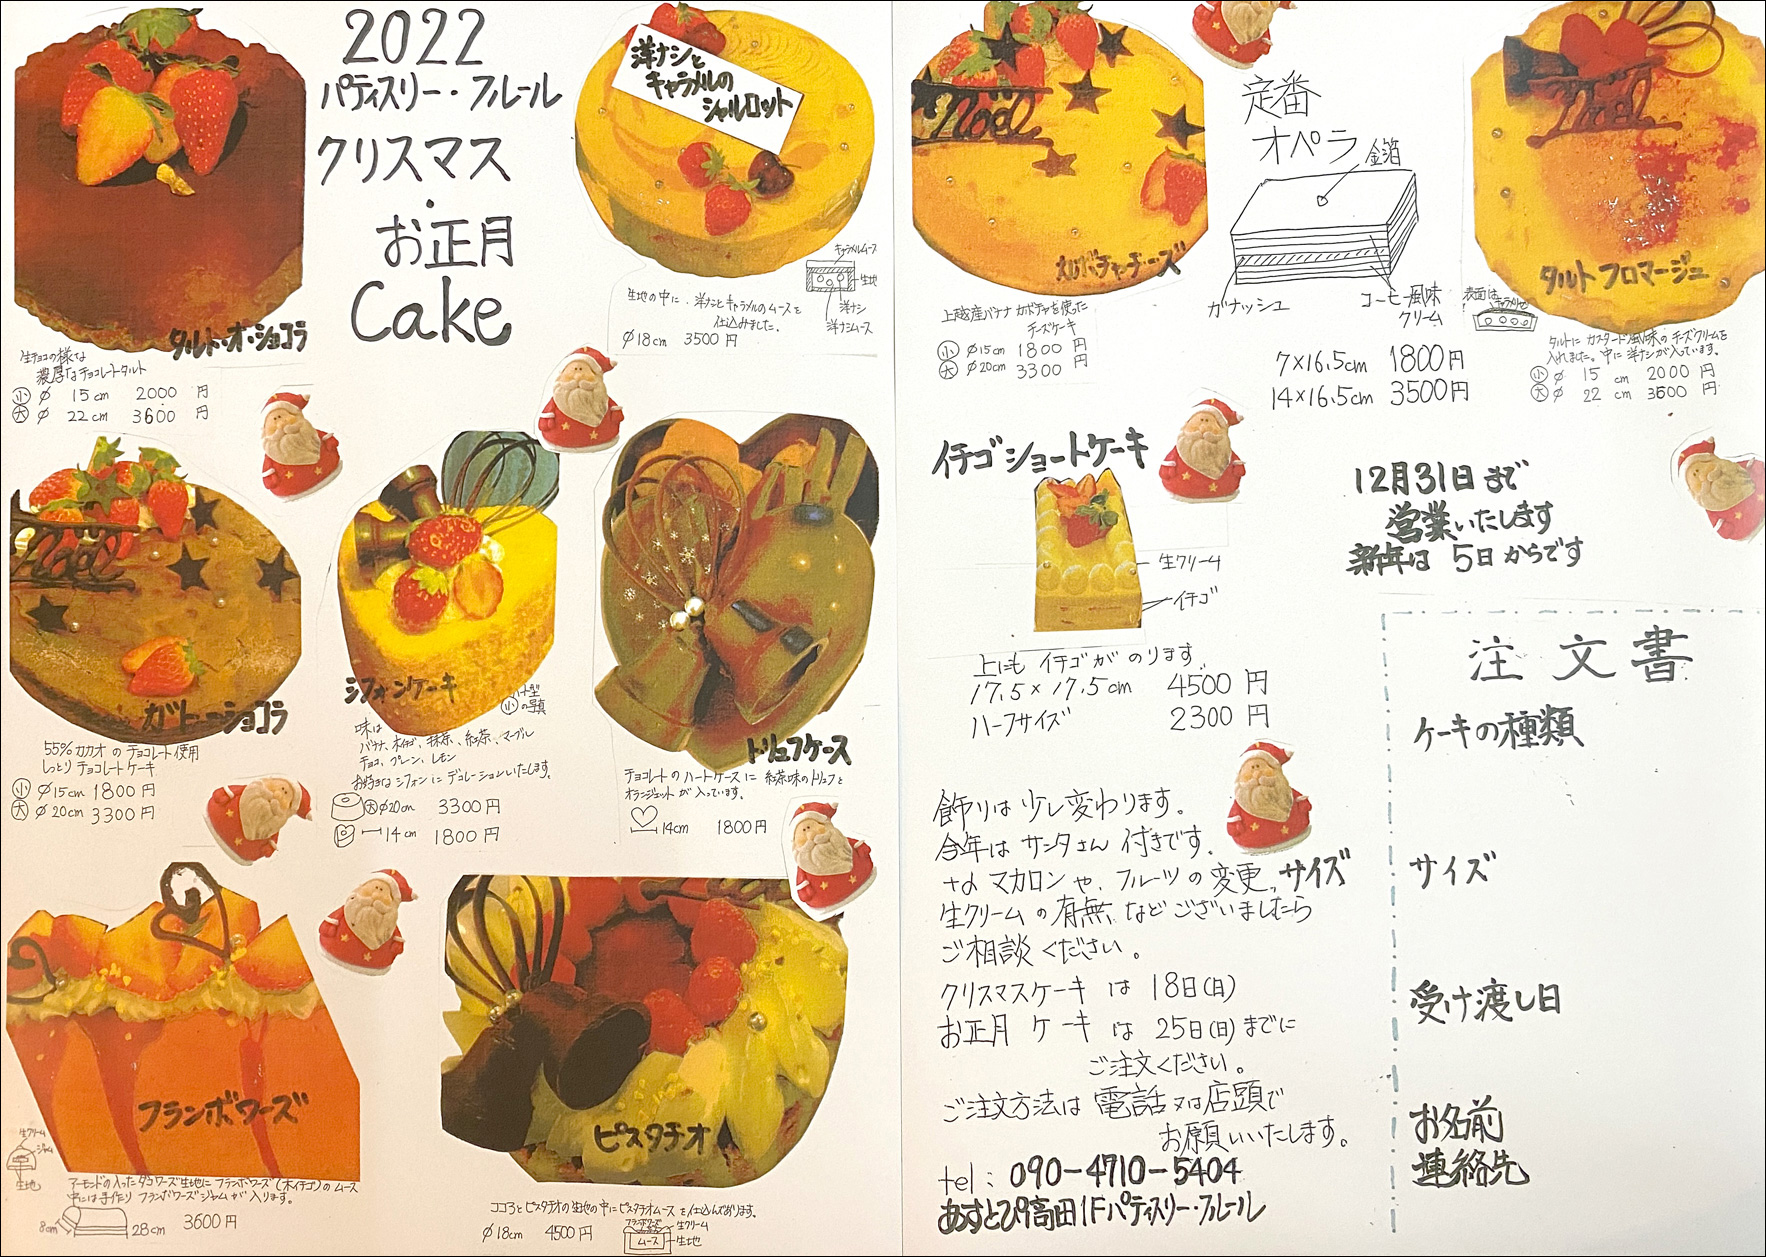 2022
パティスリー・フルール
クリスマス
・
お正月
Cake
タルト・オ・ショコラ
生チョコの様な
濃厚なチョコレートタルト
小 φ 15cm 2000円
大 φ 22cm 3600円
洋ナシと
キャラメルの
シャルロット
キャラメルムース
生地
洋ナシ
洋ナシムース
生地の中に、洋ナシとキャラメルのムースを
仕込みました。
φ18cm 3500円
Noël
ガトーショコラ
55%カカオのチョコレート使用
しっとりチョコレートケーキ
小 φ15cm 1800円
大 φ20cm 3300円
シフォンケーキ
ハート型
小の写真
味は
バナナ、木イチゴ、抹茶、紅茶、マーブル
チョコ、プレーン、レモン
お好きなシフォンにデコレーションいたします。
大φ20cm 3300円
14cm 1800円
トリュフケース
チョコレートのハートケースに 紅茶味のトリュフと
オランジェットが入っています。
14cm 1800円
フランボワーズ
生クリーム
ジャム
生地
アーモンドの入ったダコワーズ生地にフランボワーズ(木イチゴ)のムース
中には手作りフランボワーズジャムが入ります。
8cm 28cm 3600円
ピスタチオ
ココアとピスタチオの生地の中にピスタチオムースを仕込んであります。
φ18cm 4500円
フランボワーズ
生クリーム
ムース
生地
Noël
カボチャチーズ
上越産バナナカボチャを使った
チーズケーキ
小 φ15cm 1800円
大 φ20cm 3300
定番
オペラ
金箔
ガナッシュ
コーヒー風味
クリーム
7×16.5cm 1800円
14×16.5cm 3500円
Noël
タルト フロマージュ
表面はキャラメリゼ
タルトにカスタード風味のチーズクリームを
入れました。中に洋ナシが入っています。
小 φ 15cm 2000円
大 φ 22cm 3600円
イチゴショートケーキ
生クリーム
イチゴ
上にもイチゴがのります
17.5×17.5cm 4500円
ハーフサイズ 2300円
12月31日まで
営業いたします
新年は 5日からです
飾りは少し変わります。
今年はサンタさん付きです。
マカロンや、フルーツの変更、サイズ
生クリームの有無などございましたら
ご相談ください。
クリスマスケーキ は 18日(日)
お正月ケーキ は 25日(日)までに
ご注文ください。
ご注文方法は 電話又は店頭で
お願いいたします。
tel: 090-4710-5404
あすとぴあ高田1Fパティスリー・フルール
注文書
ケーキの種類
サイズ
受け渡し日
お名前
連絡先